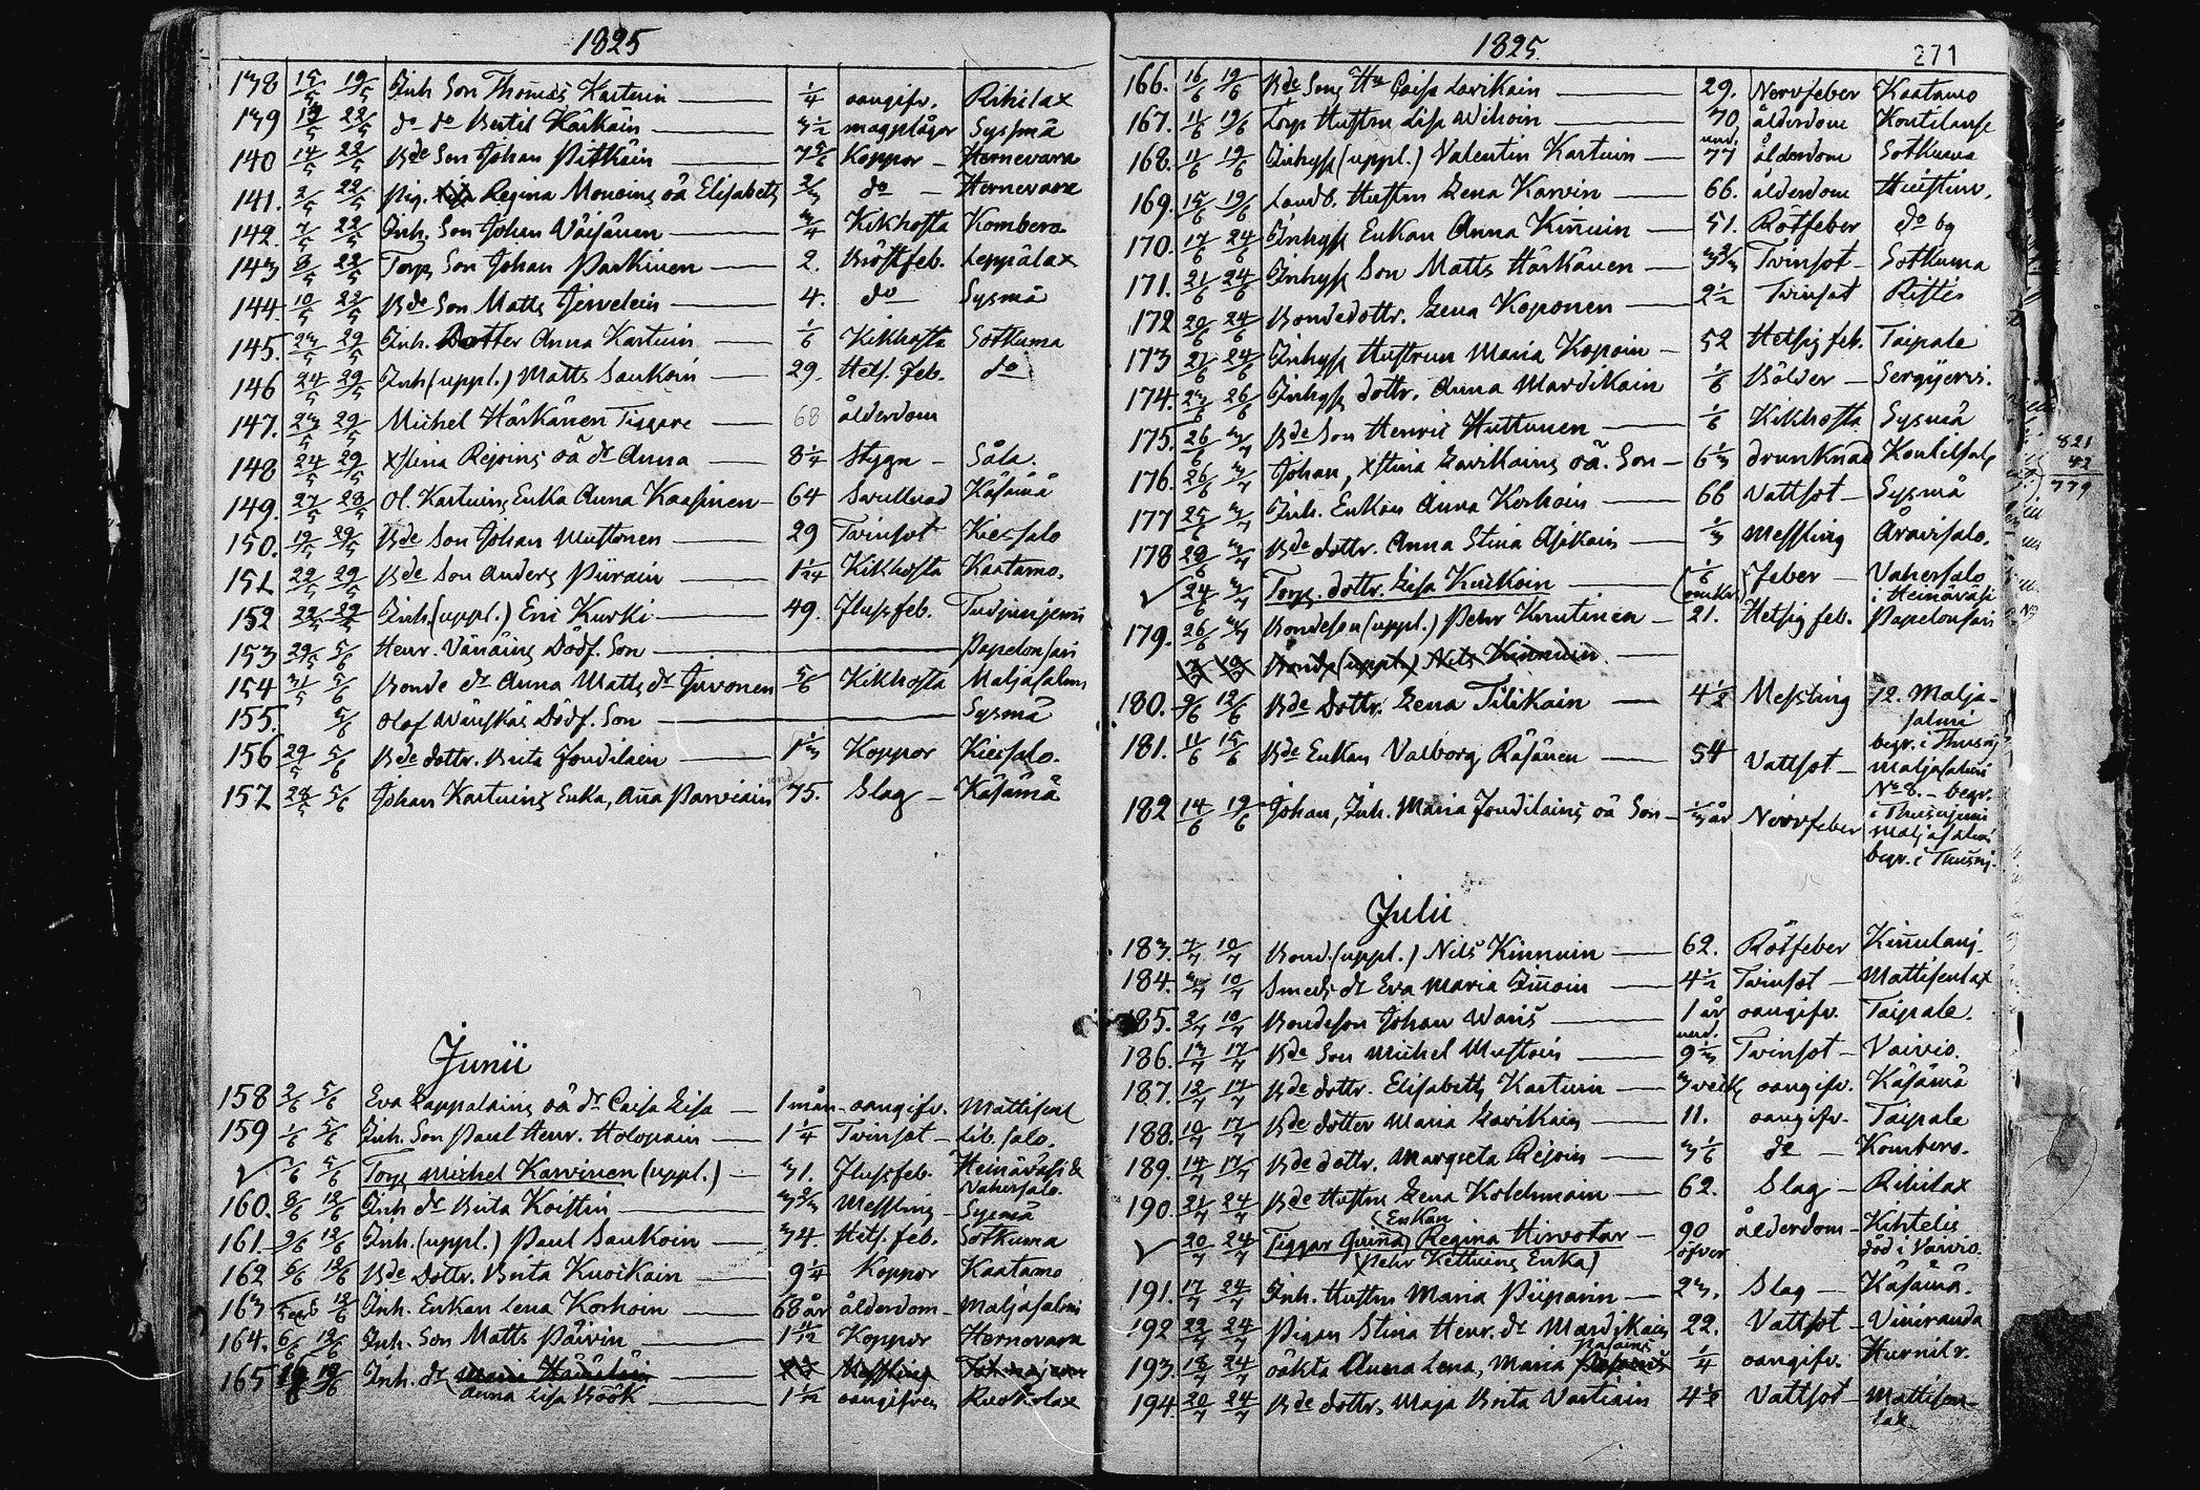 1825
138 15/5 19/5 Inh Son Thomas Kartuin 1/4 oangifv. Rihilax
139 19/5 22/5 do do Bertil Karkain 3 1/2 magplågor Sysmä
140 14/5 22/5 Bde Son Johan Pitkäin 7 5/6 Koppor Hernevara
141. 2/5 22/5 Pig. Regina Monoins oä Elisabeth 2/3 do Hernevara
142. 7/5 22/5 Inh. Son Johan Väisänen 3/4 Kikhosta Kombero
143 8/5 22/5 Torp Son Johan Parkinen 2. Bröstfeb. Leppälax
144. 10/5 22/5 Bde Son Matts Jervelein 4. do Sysmä
145. 23/5 29/5 Inh. Dotter Anna Kartuin 1/6 Kikhosta Sotkuma
146 24/5 29/5 Inh (uppl.) Matts Saukoin 29. Hets. feb. do
147. 23/5 29/5 Michel Härkänen Tiggare 68 ålderdom
148 24/5 29/5 Xstina Rejoins oä dr Anna 8 1/4 Stygn Såla.
149. 27/5 28/5 Ol. Kartuins Enka Anna Kaasinen 64 Svullnad Käsämä
150. 19/5 29/5 Bde Son Johan Mustonen 29 Tvinsot Kiessalo
151 22/5 29/5 Bde Son Anders Piirain 1 1/24 Kikhosta Kaatamo.
152 22/5 29/5 Inh. (uppl.) Eric Kurki 49. Flussfeb.
153 29/5 5/6 Henr. Vänäins Dödf. Son Papelonsari
154 31/5 5/6 Bonde dr Anna Matts dr Juvonen 5/6 Kikhosta Maljasalmi
155. 5/6 Olof Wänskäs Dödf. Son Sysmä
156 29/5 5/6 Bde dottr. Brita Joudilain 1 1/3 Koppor Kiessalo.
157 28/5 5/6 Johan Kartuins Enka, Aña Parviain und 75. Slag Käsämä
Junii
158 2/6 5/6 Eva Lappalains oä dr Caisa Lisa 1 mån oangifv. Mattisenl
159 1/6 5/6 Inh. Son Paul Henr. Holopain 1 1/4 Tvinsot Lib. salo.
√ 1/6 5/6 Torp Michel Karvinen (uppl.) 31. Flussfeb. Heinäväsi &
Vahersalo.
160. 8/6 12/6 Inh dr Brita Koistin 3 2/3 Messling Sysmä
161. 9/6 12/6 Inh. (uppl.) Paul Saukoin 34. Hets. feb. Sotkuma
162 6/6 12/6 Bde Dottr. Brita Kuoikain 9 1/4 Koppor Kaatamo
163 12/6 Inh. Enkan Lena Korhoin 68 år ålderdom Maljasalmi
164. 6/6 12/6 Inh. Son Matts Päivin 1 11/12 Koppor Hernovara
165 12/6 Inh. dr Messling
Anna Lisa Böök 1 1/12 oangifven Kuokolax
1825.
271
166. 16/6 19/6 Bde Sons Hu Caisa Lavikain 29. Nervfeber Kaatamo
167. 11/6 19/6 Torp Hustru Lisa Wihoin 70 ålderdom Kontilans
168. 11/6 19/6 Inhys (uppl.) Valentin Kartuin und. 77 ålderdom Sotkuma
169. 15/6 19/6 Landb. Hustru Lena Karvin 66. ålderdom
170. 17/6 24/6 Inhys Enkan Anna Kiñuin 51. Rötfeber do by
171. 21/6 24/6 Inhys Son Matts Härkänen 3 2/3 Tvinsot Sotkuma
172 20/6 24/6 Bondedottr. Lena Koponen 2 1/2 Tvinsot Ristis
173 21/6 24/6 Inhys Hustrun Maria Kopoin 52 Hetsig feb. Taipale
174. 23/6 26/6 Inhys dottr. Anna Mardikain 1/6 Bölder Sergijervi.
175. 26/6 3/7 Bde Son Henric Huttunen 1/6 Kikhosta Sysmä
176. 26/6 3/7 Johan, Xstina Lavikains oä. Son 6 1/3 drunknad Kontilsal
177 25/6 3/7 Inh. Enkan Anna Korhoin 66 Vattsot Sysmä
178 28/6 3/7 Bde dottr. Anna Stina Asikain 1/3 Messling Åravisalo.
√ 24/6 3/7 Torp. dottr. Lisa Kurkoin 1/6 (omkr) Feber Vahersalo
i Heinäväsi
179. 26/6 Bondeson (uppl.) Petr Knutinen 21. Hetsig feb. Papelonsari
Bonde (uppl.) Nils Kinnuin
180. 9/6 12/6 Bde Dottr. Lena Tilikain 4 1/2 Messling 12. Malja-
salmi
begr. i Thusnj
181. 11/6 15/6 Bde Enkan Valborg Räsänen 54 Vattsot Maljasalmi
No 8. begr.
i Thusnjemi
182 14/6 19/6 Johan, Inh. Maria Joudilains oä Son 1/3 år Nervfeber Maljasalmi
begr. i Thusnj.
Julii
183. 7/7 10/7 Bond. (uppl.) Nils Kinnuin 62. Rötfeber Kiñulanj.
184. 10/7 Smeds dr Eva Maria Iiñoin 4 1/2 Tvinsot Mattisenlax
185. 2/7 10/7 Bondeson Johan Waris 1 år oangifv. Taipale.
186. 13/7 17/7 Bde Son Michel Mustoin und. 9 1/3 Tvinsot Vaivio.
187. 12/7 17/7 Bde dottr. Elisabeth Kartuin 3 veck oangifv. Käsämä
188. 10/7 17/7 Bde dotter Maria Lavikain 11. oangifv. Taipale
189. 14/7 17/7 Bde dottr. Margreta Rejoin 3 1/6 do Kombero.
190. 21/7 24/7 Bde Hustru Lena Kolehmain 62. Slag Rihilax
(Enkan
√ 20/7 24/7 Tiggar Qviña) Regina Hirvotar 90 öfver ålderdom Kihtelis
(Petr Kettuins Enka) död i Vaivio.
191. 17/7 24/7 Inh. Hustru Maria Piiparin 23. Slag Käsämä.
192 22/7 24/7 Pigan Stina Henr. dr Mardikain 22. Vattsot Viiniranda
193. 18/7 24/7 oäkta Anna Lena, Maria Pasains 1/4 oangifv.
194. 20/7 24/7 Bde dottr. Maja Brita Vartiain 4 1/2 Vattsot Mattisen-
lax
821
42
779